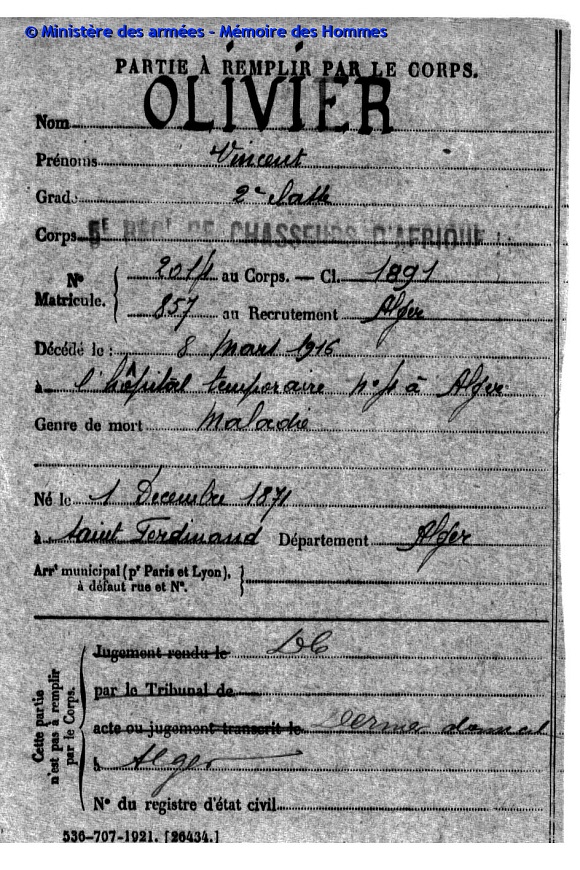 © Ministère des armées - Mémoire des Hommes
PARTIE À REMPLIR PAR LE CORPS.
Nom OLIVIER
Prénoms Vincent
Grade 2e classe
Corps 5E REGt DE CHASSEURS D'AFRIQUE
No Matricule. { au Corps. — Cl. 1891
857 au Recrutement Alger
Décédé le : 8 Mars 1916
à l'hôpital temporaire à Alger
Genre de mort Maladie
Né le 1 Decembre 1871
à Saint Ferdinand Département Alger
Arrt municipal (pr Paris et Lyon), }
à défaut rue et No.
Cette partie n'est pas à remplir par le Corps.
Jugement rendu le
par le Tribunal de
acte ou jugement transcrit le Dernier
à Alger
No du registre d'état civil
536-707-1921. [26434.]